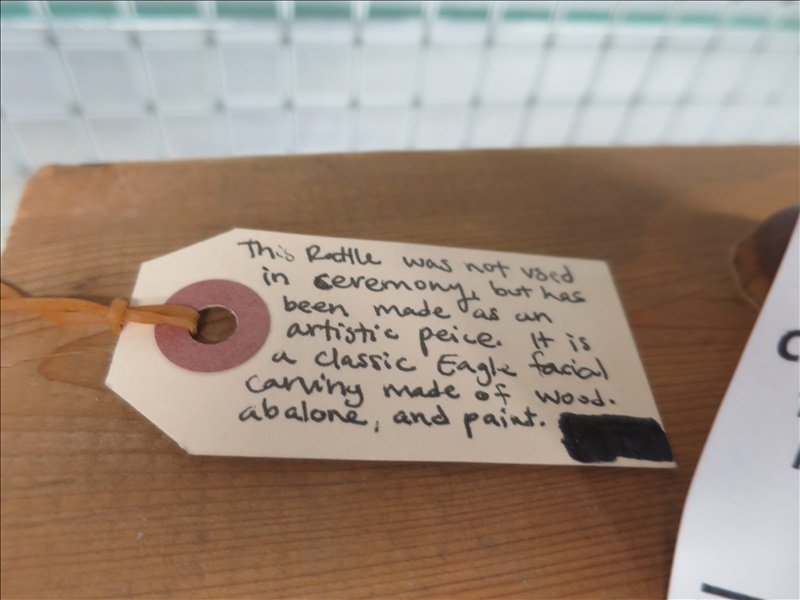 This Rattle was not used
in ceremony, but has
been made as an
artistic peice. It is
a classic Eagle facial
carving made of wood.
abalone, and paint.